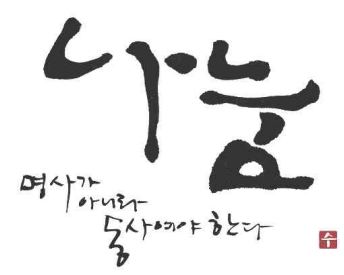 나눔
명사가
아니라
동사여야 한다
수